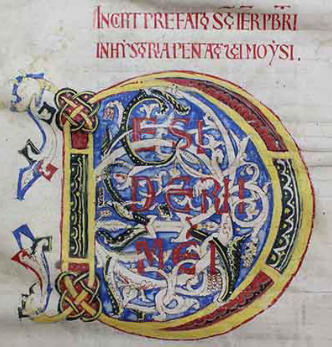 INCIPIT PREFATIO SCI IERP̄BRI
IN HYSTORIA PENTATEVCI MOYSI.
D
ESI
DERII
MEI